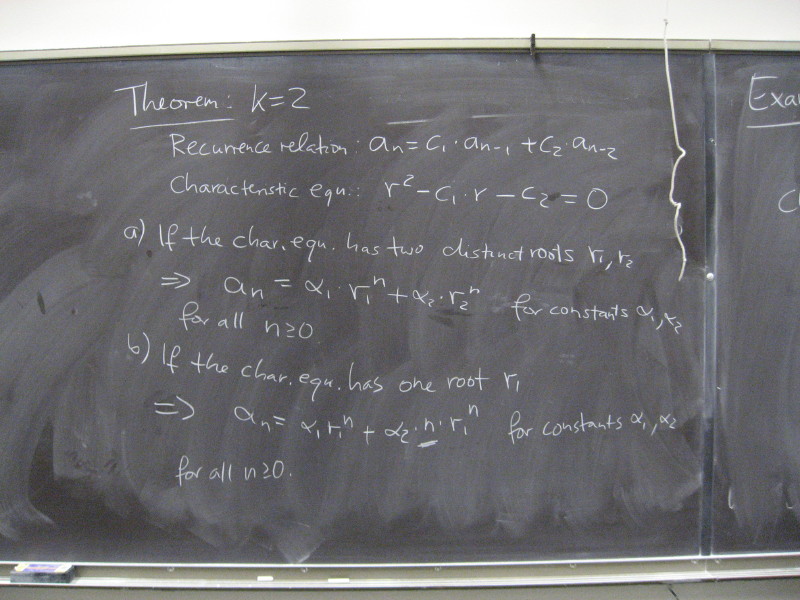 Theorem: k=2
Recurrence relation: aₙ = c₁·aₙ₋₁ + c₂·aₙ₋₂
Characteristic equ.: r² - c₁·r - c₂ = 0
a) If the char. equ. has two distinct roots r₁, r₂
⇒ aₙ = α₁·r₁ⁿ + α₂·r₂ⁿ for constants α₁, α₂
for all n≥0
b) If the char. equ. has one root r₁
⇒ aₙ = α₁r₁ⁿ + α₂·n·r₁ⁿ for constants α₁, α₂
for all n≥0.
Exa